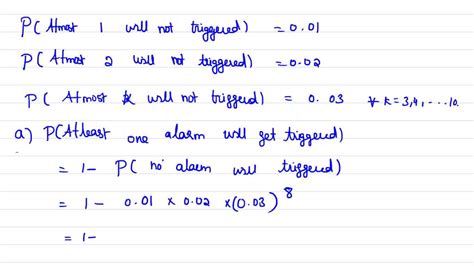 P(Atmost 1 will not triggered) = 0.01
P(Atmost 2 will not triggered) = 0.02
P(Atmost k will not triggerd) = 0.03 ∀ k=3,4,....10.
a) P(Atleast one alarm will get triggered)
= 1- P(no alarm will triggered)
= 1- 0.01 x 0.02 x(0.03)^8
= 1-